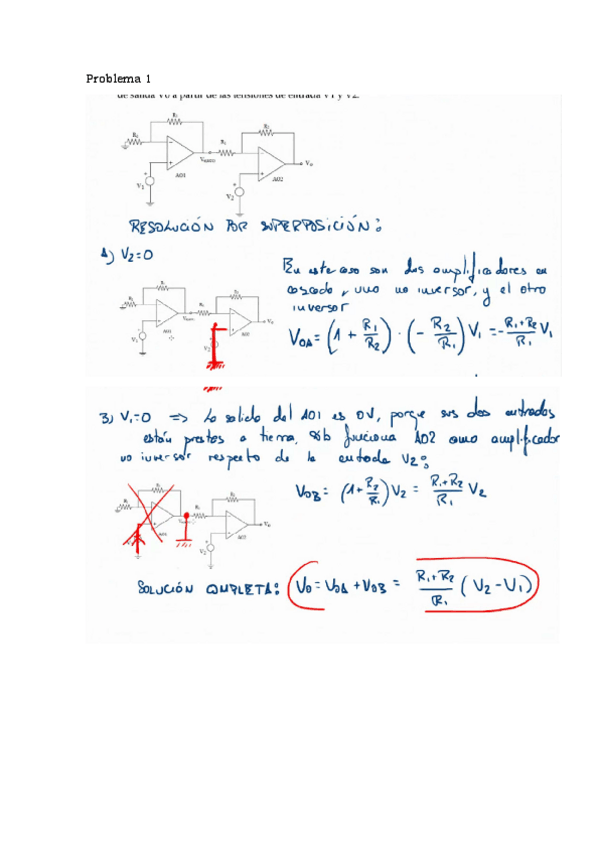 Problema 1
de salida V0 a partir de las tensiones de entrada V1 y V2.
AO1
AO2
V1
V2
Vo
RESOLUCIÓN POR SUPERPOSICIÓN:
A) V2=0
En este caso son dos amplificadores en
cascada, uno no inversor, y el otro
inversor
VOA = (1 + R1/R2) · (- R2/R1) V1 = - (R1+R2)/R1 V1
B) V1=0 => La salida del AO1 es 0V, porque sus dos entradas
están puestas a tierra. Sólo funciona AO2 como amplificador
no inversor respecto de la entrada V2:
VOB = (1+ R2/R1) V2 = (R1+R2)/R1 V2
SOLUCIÓN COMPLETA: V0 = VOA + VOB = (R1+R2)/R1 (V2 - V1)